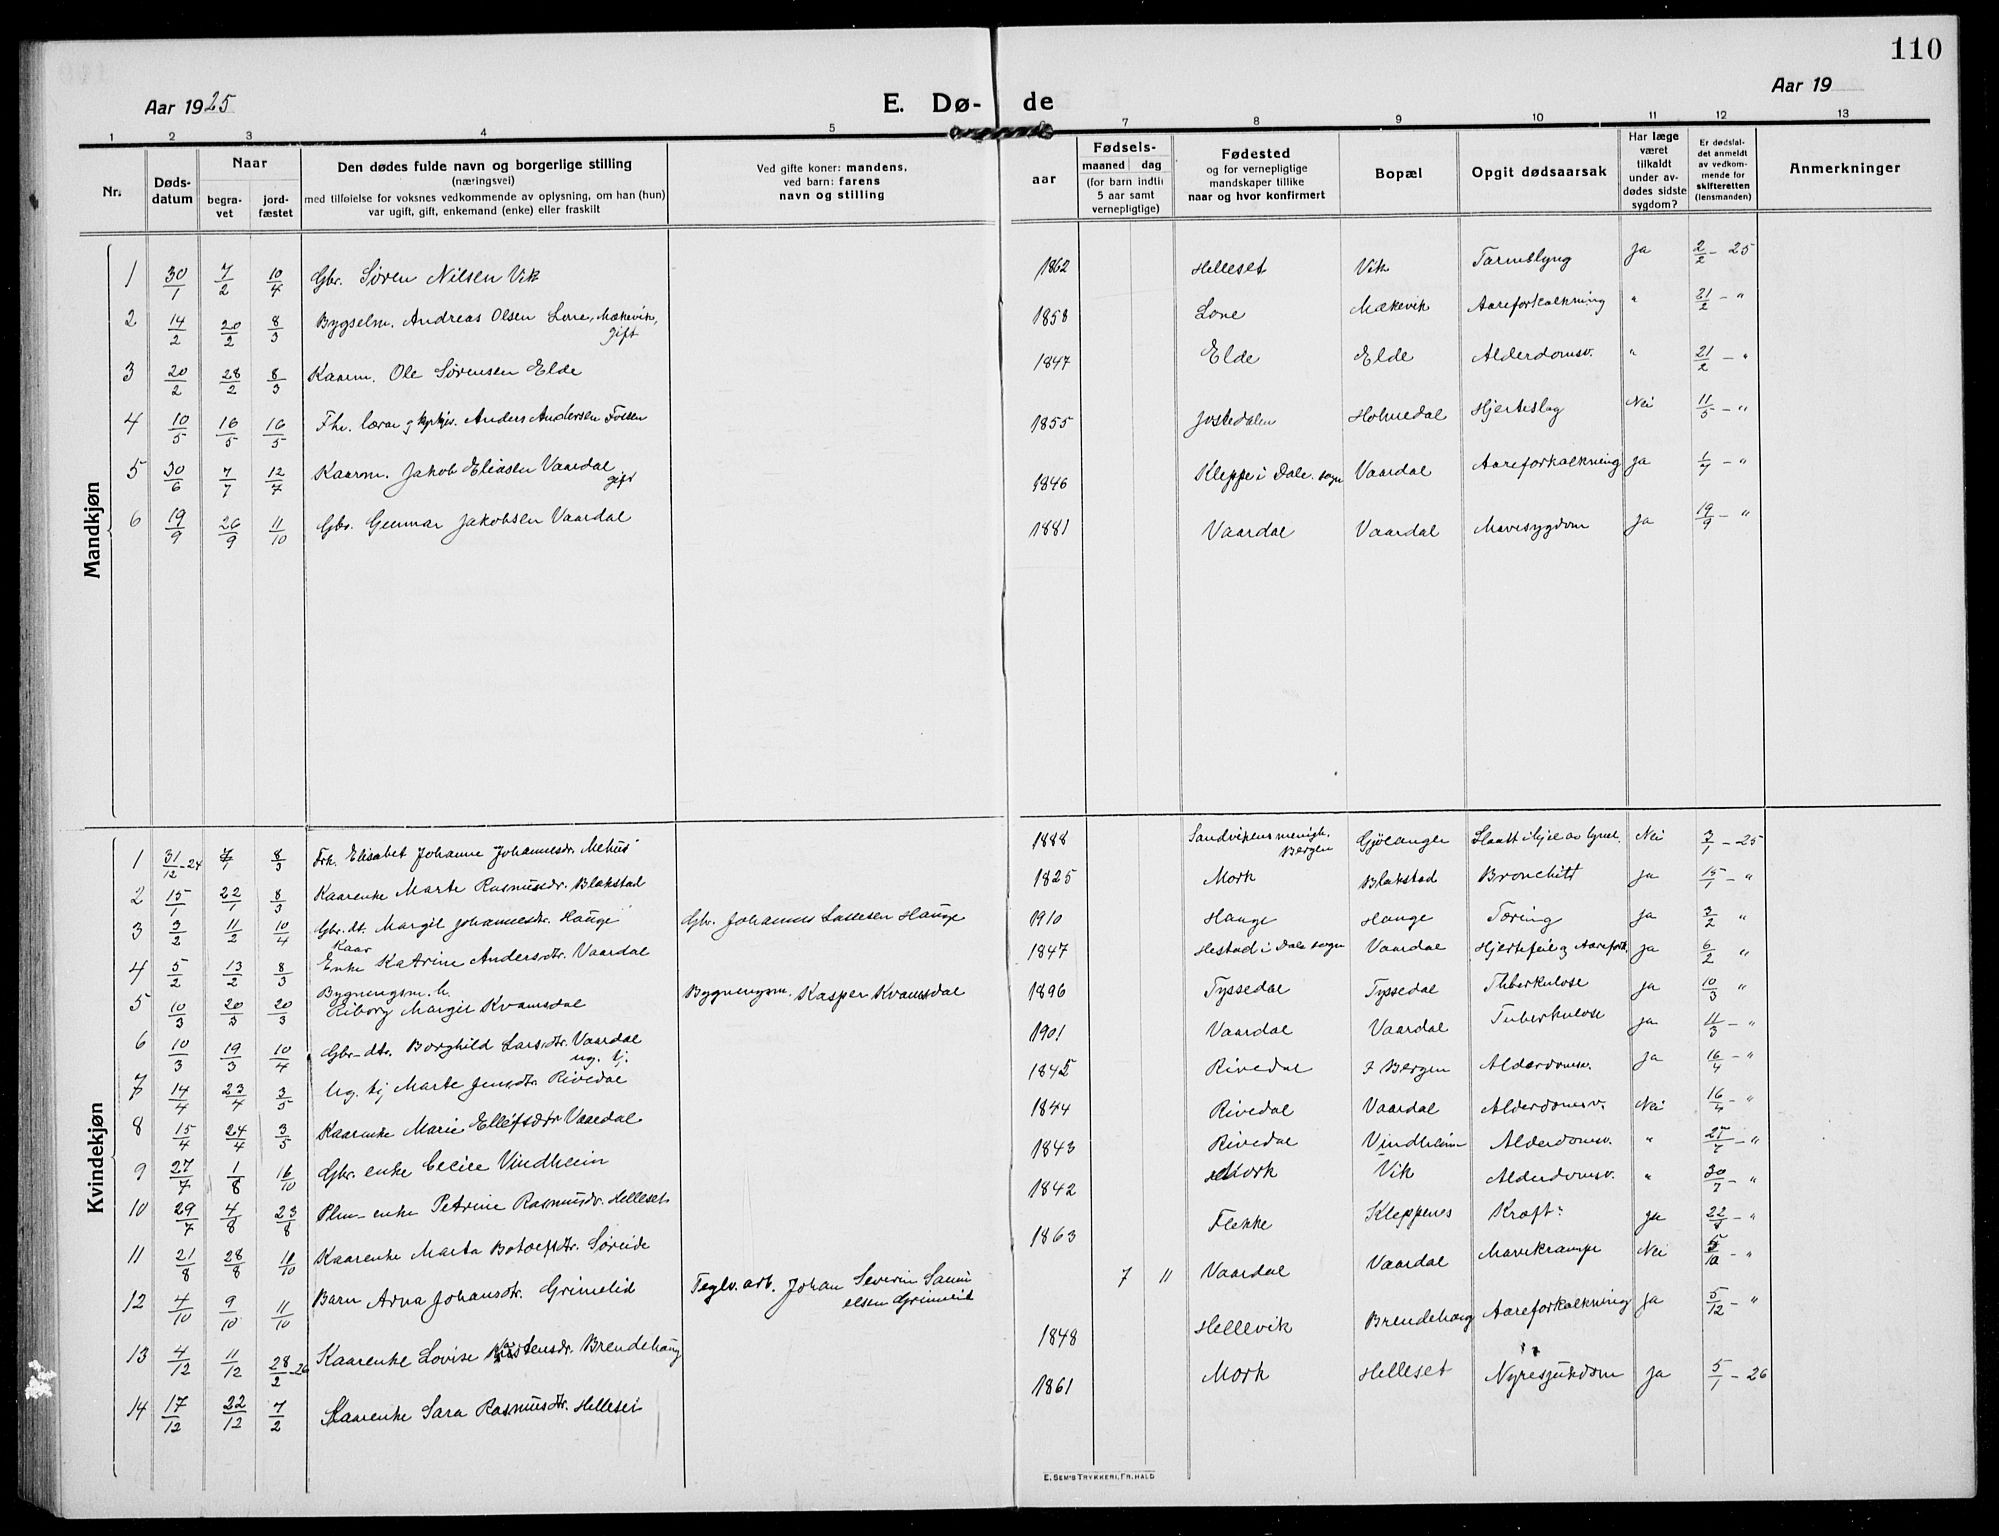 110
Aar 1925
E. Dø- de
Aar 19
1 2 3 4 5 6 7 8 9 10 11 12 13
Nr.
Døds-
datum
Naar
begra-
vet
jord-
fæstet
Den dødes fulde navn og borgerlige stilling
(næringsvei)
med tilføielse for voksnes vedkommende av oplysning, om han (hun)
var ugift, gift, enkemand (enke) eller fraskilt
Ved gifte koner: mandens,
ved barn: farens
navn og stilling
Fødsels-
aar
maaned dag
(for barn indtil
5 aar samt
vernepligtige)
Fødested
og for vernepligtige
mandskaper tillike
naar og hvor konfirmert
Bopæl
Opgit dødsaarsak
Har læge
været
tilkaldt
under av-
dødes sidste
sygdom?
Er dødsfal-
det anmeldt
av vedkom-
mende for
skifteretten
(lensmanden)
Anmerkninger
Mandkjøn
1 30/1 7/2 10/4 Gbr. Søren Nilsen Vik 1862 Helleset Vik Tarmslyng Ja 2/2 - 25
2 14/2 20/2 8/3 Bygselm. Andreas Olsen Lone, Mækevik, gift 1858 Lone Mækevik Aareforkalkning " 21/2 - "
3 20/2 28/2 8/3 Kaarm. Ole Sørensen Elde 1847 Elde Elde Alderdomsv. " 21/2 - "
4 10/5 16/5 16/5 Fhv. lærar og kyrkjes. Anders Andersen Fossen 1855 Jostedalen Holmedal Hjerteslag Nei 11/5 - "
5 30/6 7/7 12/7 Kaarm. Jakob Eliasen Vaardal gift 1846 Kleppe i Dale sogn Vaardal Aareforkalkning Ja 1/7 - "
6 19/9 26/9 11/10 Gbr. Gunnar Jakobsen Vaardal 1881 Vaardal Vaardal Mavesygdom Ja 19/9 - "
Kvindekjøn
1 31/12-24 7/1 8/3 Frk. Elisabet Johanne Johannesdr. Mehus 1888 Sandvikens menigh. Bergen Gjølanger Slaatt ihjel av lynet. Nei 3/1 - 25
2 15/1 22/1 8/3 Kaarenke Marte Rasmusdr. Blakstad 1825 Mork Blakstad Bronchitt Ja 15/1 - "
3 3/2 11/2 10/4 Gbr. dt. Margit Johannesdtr. Hauge Gbr. Johannes Lassesen Hauge 1910 Hauge Hauge Tæring Ja 3/2 "
4 5/2 13/2 8/3 Kaar Enke Katrine Andersdtr. Vaardal 1847 Hestad i Dale sogn Vaardal Hjertefeil og Aarefork. Ja 6/2 "
5 10/3 20/3 20/3 Bygningsm. h. Eiborg Margit Kvamsdal Bygningsm. Kasper Kvamsdal 1896 Tyssedal Tyssedal Tuberkulose Ja 10/3 "
6 10/3 19/3 10/4 Gbr-dtr. Borghild Larsdtr. Vaardal ug. tj. 1901 Vaardal Vaardal Tuberkulose Ja 11/3 - "
7 14/4 23/4 3/5 Ug. tj Marte Jensdtr. Rivedal 1845 Rivedal I Bergen Alderdomsv. Ja 16/4 - "
8 15/4 24/4 3/5 Kaarenke Marie Ellefsdtr Vaardal 1844 Rivedal Vaardal Alderdomsv. Nei 16/4 - "
9 27/7 1/8 16/10 Gbr. enke Cecilie Vindheim 1843 Rivedal Vindheim Alderdomsv. " 27/7 - "
10 29/7 4/8 23/8 Plm-enke Petrine Rasmusdr. Helleset 1842 Mork Vik Alderdomsv. " 30/7 - "
11 21/8 28/8 11/10 Kaarenke Marta Botolfsdtr. Søreide 1863 Flekke Kleppenes Kræft ja 22/8 - "
12 4/10 9/10 11/10 Barn Arna Johansdtr. Grimelid Teglv. arb. Johan Severin Samuelsen Grimelid 7 11 Vaardal Vaardal Mavekrampe Nei 5/10 - "
13 4/12 11/12 28/2-26 Kaarenke Lovise Karstensdr. Brendehaug 1848 Hellevik Brendehaug Aareforkalkning Ja 5/12 - "
14 17/12 22/12 7/2 Kaarenke Sara Rasmusdtr. Helleset 1861 Mork Helleset Nyresjukdom Ja 5/1 - 26
E. SEM'S TRYKKERI, FR. HALD